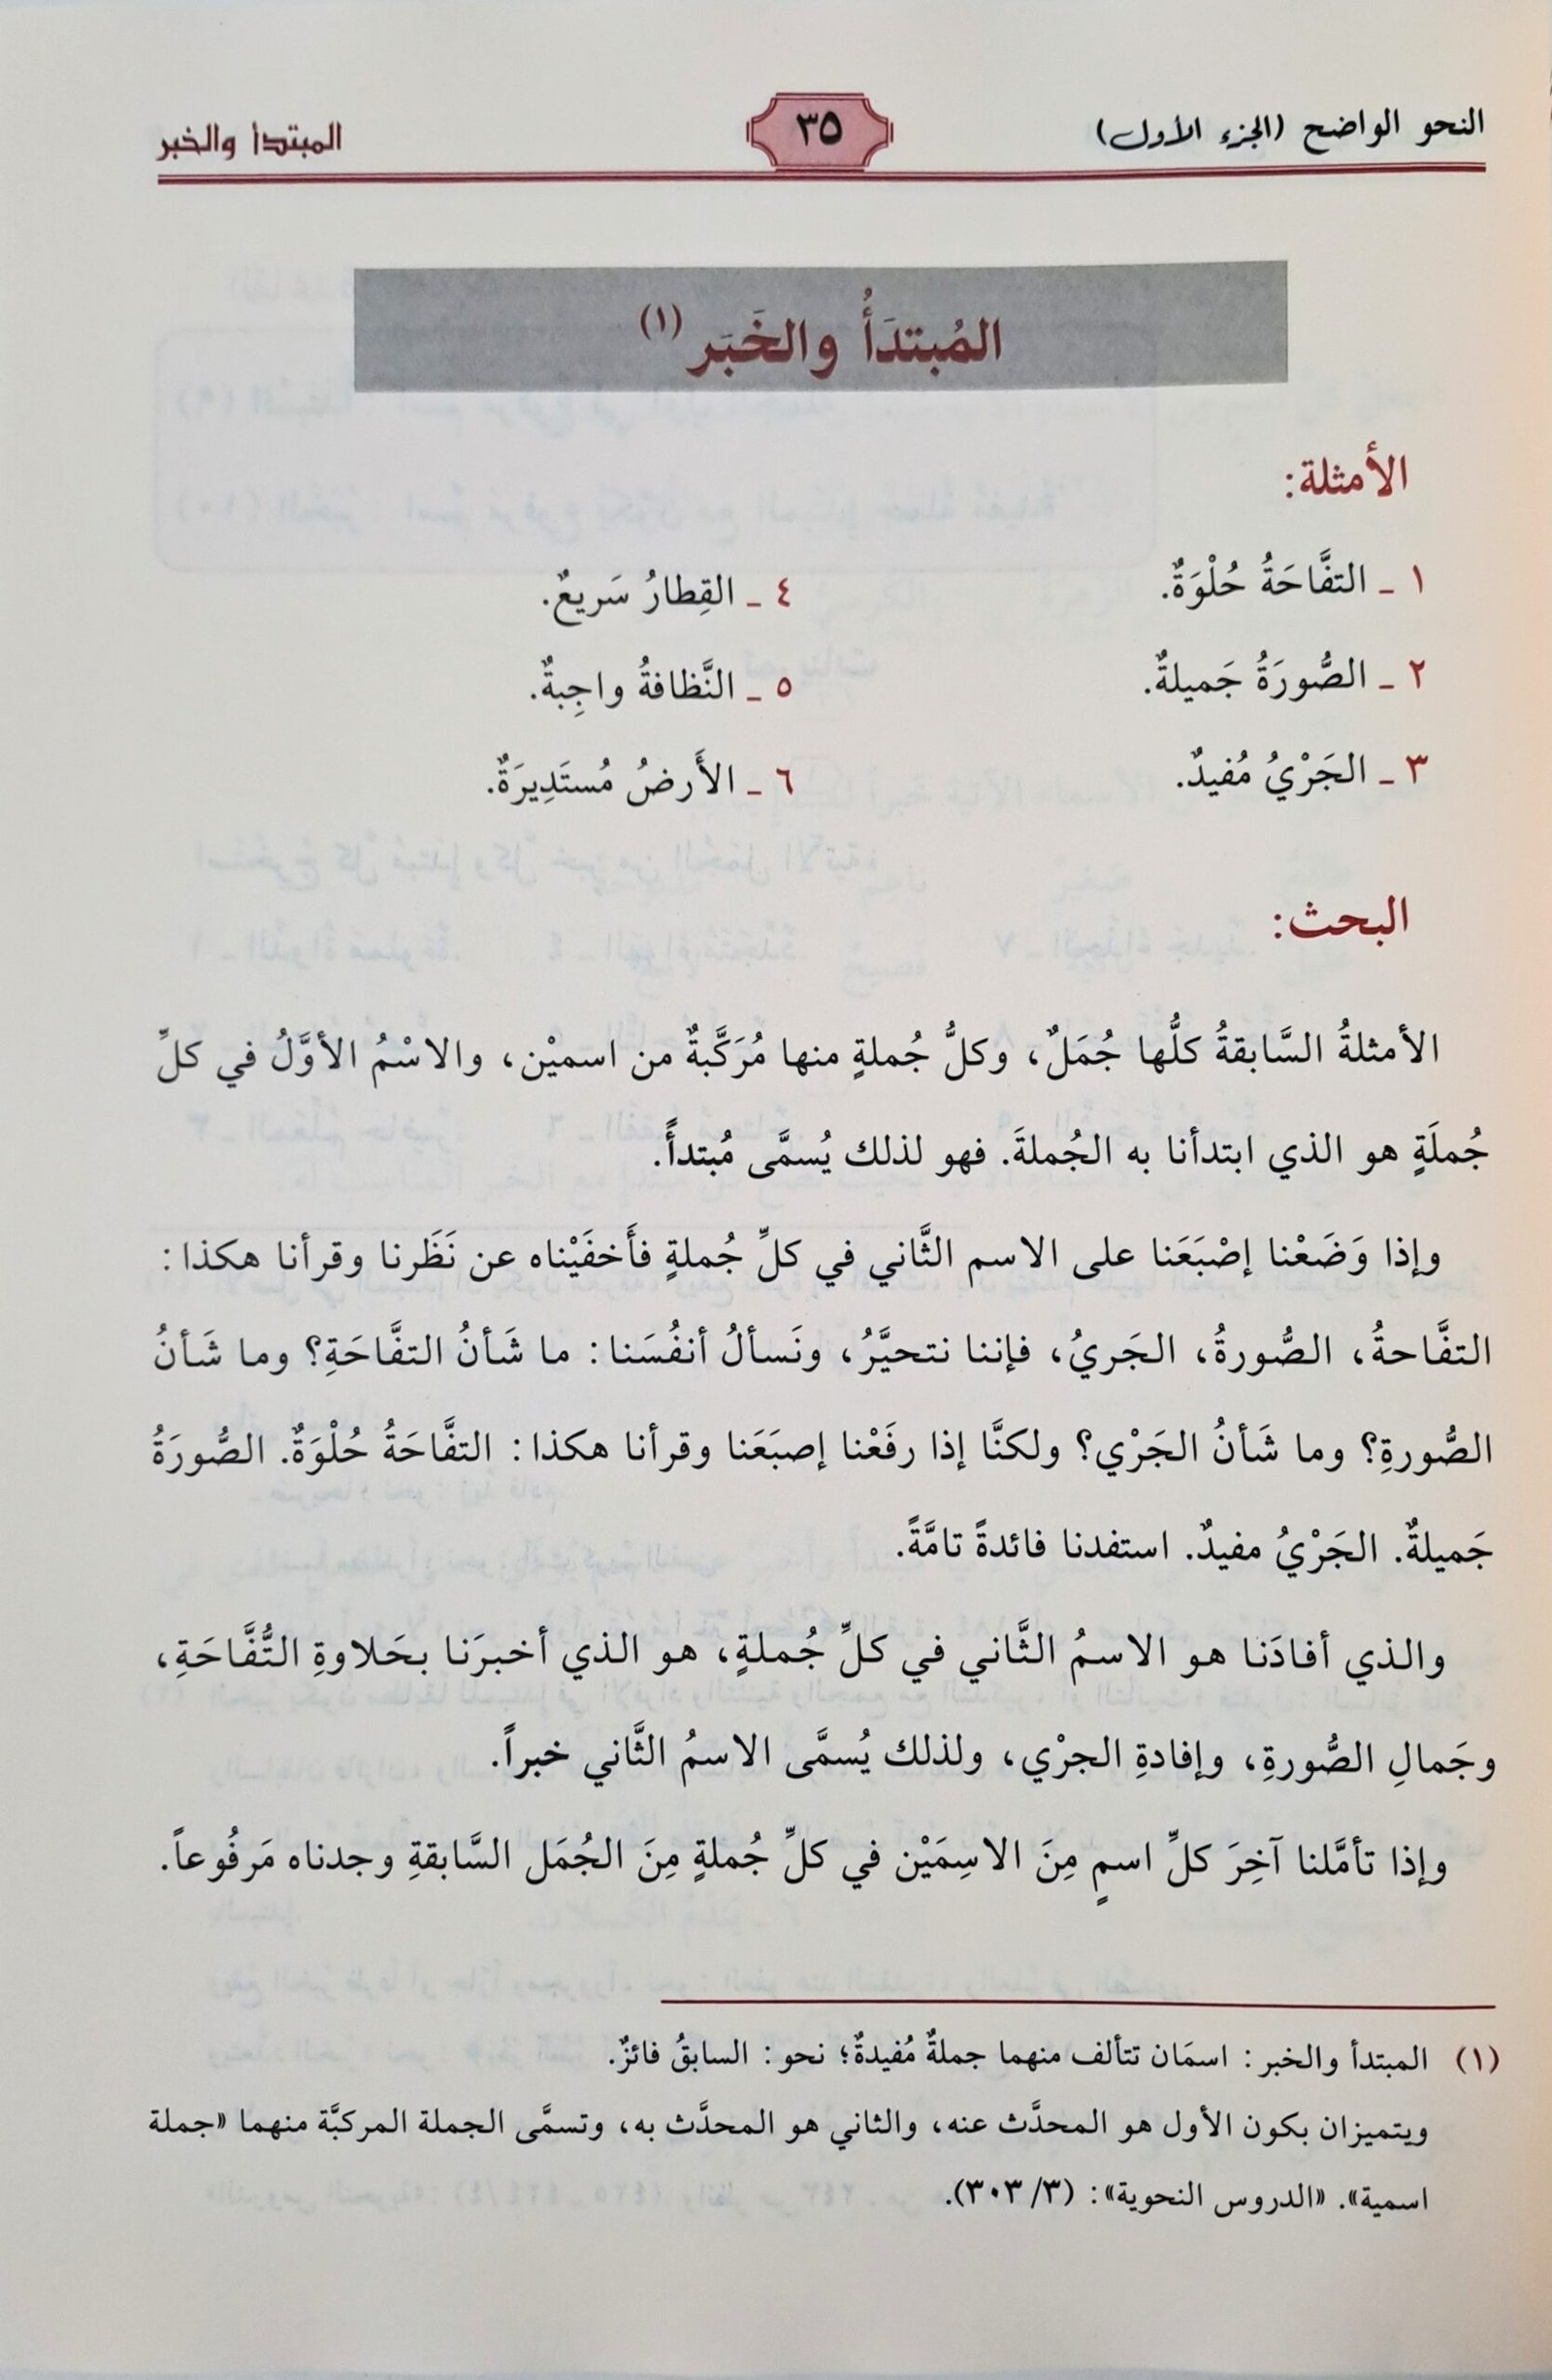 النحو الواضح (الجزء الأول)
٣٥
المبتدأ والخبر
المُبتدَأُ والخَبَر (١)
الأمثلة:
١ ـ التفَّاحَةُ حُلْوَةٌ.
٢ ـ الصُّورَةُ جَميلةٌ.
٣ ـ الجَرْيُ مُفيدٌ.
٤ ـ القِطارُ سَريعٌ.
٥ ـ النَّظافةُ واجِبةٌ.
٦ ـ الأَرضُ مُستَدِيرَةٌ.
البحث:
الأمثلةُ السَّابقةُ كلُّها جُمَلٌ، وكلُّ جُملةٍ منها مُرَكَّبةٌ من اسميْن، والاسْمُ الأوَّلُ في كلِّ
جُملَةٍ هو الذي ابتدأنا به الجُملةَ. فهو لذلك يُسمَّى مُبتدأً.
وإذا وَضَعْنا إصْبَعَنا على الاسم الثَّاني في كلِّ جُملةٍ فأَخفَيْناه عن نَظَرنا وقرأنا هكذا:
التفَّاحةُ، الصُّورةُ، الجَريُ، فإننا نتحيَّرُ، ونَسألُ أنفُسَنا: ما شَأنُ التفَّاحَةِ؟ وما شَأنُ
الصُّورةِ؟ وما شَأنُ الجَرْي؟ ولكنَّا إذا رفَعْنا إصبَعَنا وقرأنا هكذا: التفَّاحَةُ حُلْوَةٌ. الصُّورَةُ
جَميلةٌ. الجَرْيُ مفيدٌ. استفدنا فائدةً تامَّةً.
والذي أفادَنا هو الاسمُ الثَّاني في كلِّ جُملةٍ، هو الذي أخبرَنا بحَلاوةِ التُّفَّاحَةِ،
وجَمالِ الصُّورةِ، وإفادةِ الجرْي، ولذلك يُسمَّى الاسمُ الثَّاني خبراً.
وإذا تأمَّلنا آخِرَ كلِّ اسمٍ مِنَ الاسِمَيْن في كلِّ جُملةٍ مِنَ الجُمَل السَّابقةِ وجدناه مَرفُوعاً.
(١) المبتدأ والخبر: اسمَان تتألف منهما جملةٌ مُفيدةٌ؛ نحو: السابقُ فائزٌ.
ويتميزان بكون الأول هو المحدَّث عنه، والثاني هو المحدَّث به، وتسمَّى الجملة المركبَّة منهما «جملة
اسمية». «الدروس النحوية»: (٣/ ٣٠٣).